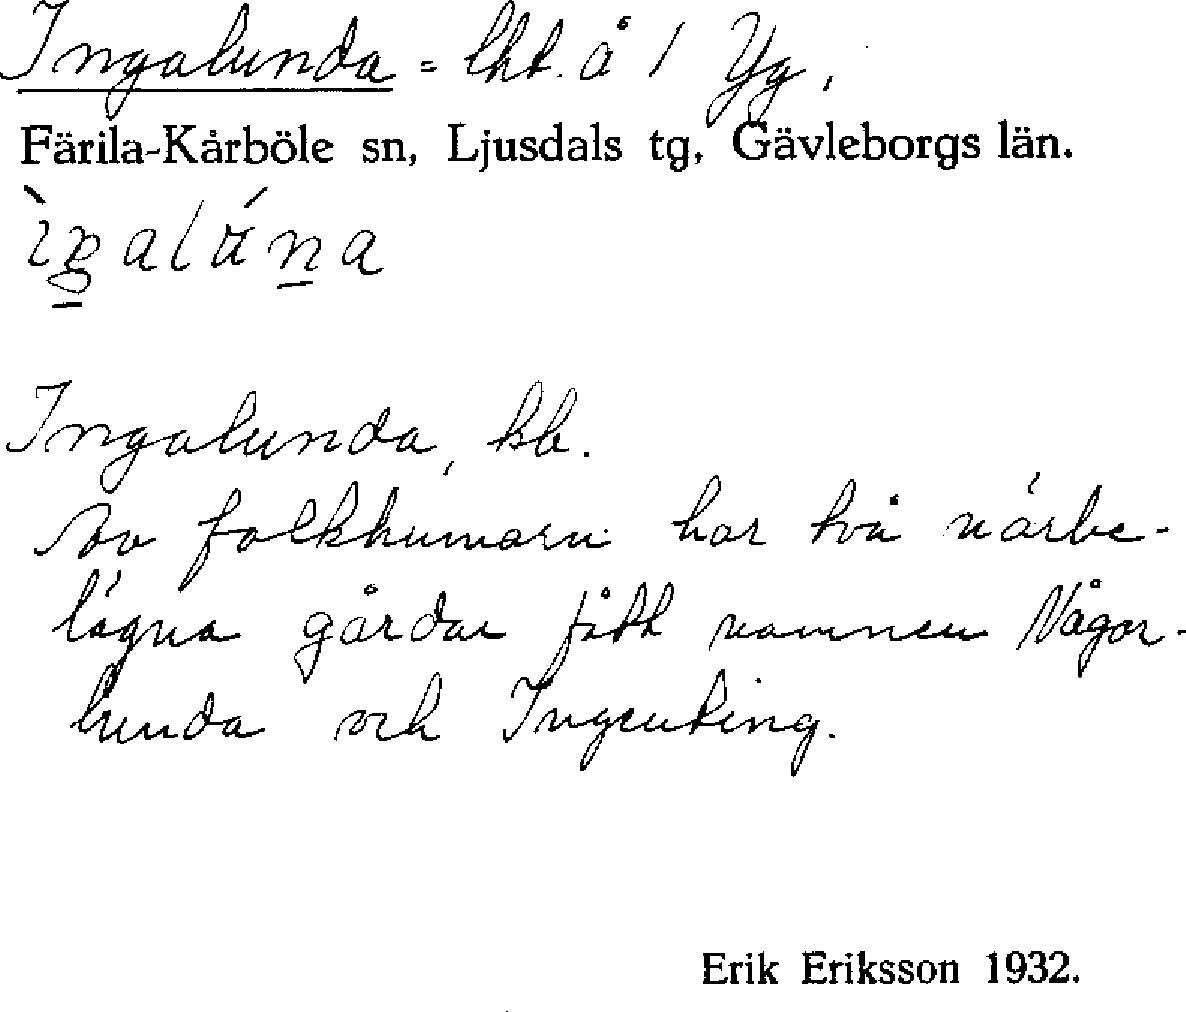 Ingalunda = lht. å 1 Yg,
Färila-Kårböle sn, Ljusdals tg, Gävleborgs län.
Ingalunda, kb.
Av folkhumorn har två närbe-
lägna gårdar fått namnen Någor-
lunda och Ingenting.
Erik Eriksson 1932.